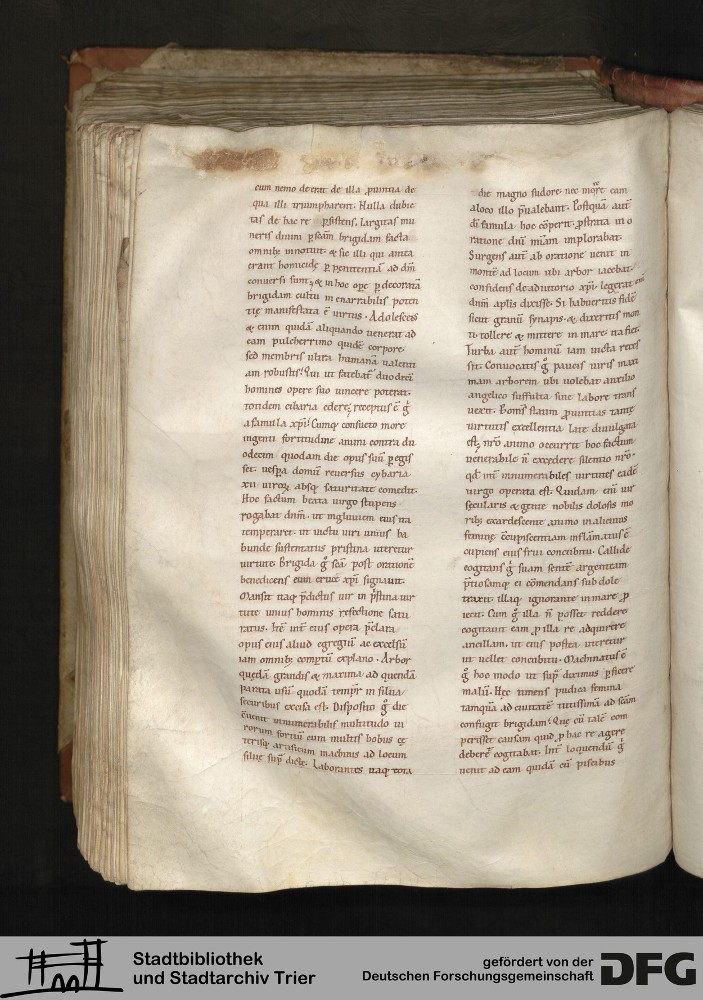 cum nemo deerat de illa ꝓuintia de
qua illi triumpharent. Nulla dubie
tas de hac re ꝑsistens. Largitas mu
neris diuini ꝑ scām brigidam facta
omnibꝫ innotuit. & sic illi qui antea
erant homicidę ꝑ penitentiā ad dm̄
conuersi sunt. & in hoc oꝑe ꝑ decoratā
brigidam cultu inenarrabilis poten
tię manifestata ē uirtus. Adolescēs
& enim quidā aliquando uenerat ad
eam pulcherrimo quidē corpore.
sed membris ultra humanā ualetu
am robustis. Qui ut fatebat duodeci
homines opere suo uincere poterat.
totidem cibaria edere. receptus ē
a famula xp̄i. Cumq; consueto more
ingenti fortitudine animi contra du
odecim quodam die opus suū ꝑegis
set. uesꝑa domū reuersus cybaria
xii uiroꝝ absq; saturitate comedit.
Hoc factum beata uirgo stupens
rogabat dnm̄. ut ingluuiem eius ita
temperaret. ut uictu uiri unius ha
bunde sustentatus pristina uteretur
uirtute. Brigida ḡ scā post orationē
benedicens eum cruce xp̄i signauit.
Mansit itaq; p̄dictus uir in p̄stina uir
tute unius hominis refectione satu
ratus. Itē int̄ eius opera p̄clara
opus eius aliud egregiū ac excelsū
iam omnibꝫ comꝑtū explano. Arbor
quędā grandis & maxima ad quendā
parata usū quodā tempr̄ in silua
securibus excisa est. Disposito ḡ die
cuenit innumerabilis multitudo ui
rorum fortiū cum multis bobus &
uerisq; artificum machinis ad locum
siluę sup̄ dictę. Laborantes itaq; tota
die magno sudore. nec mouere eam
a loco illo p̄ualebant. Postquā aut̄
di famula hoc coꝑerit. ꝓstrata in o
ratione dnī miām implorabat.
Surgens aut̄ ab oratione uenit in
montē ad locum ubi arbor iacebat.
confidens de adiutorio xp̄i. legerat enī
dnm̄ aplis dixisse. Si habueritis fidē
sicut granū synapis. & dixeritis mon
ti tollere & mittere in mare. ita fiet.
Turba aut̄ hominū iam uicta reces
sit. Conuocatis ḡ paucis uiris maxi
mam arborem ubi uolebat auxilio
angelico suffulta sine labore trans
uexit. Fama statim ꝓuintias tantę
uirtutis excellentia late diuulgata
est. nr̄o animo occurrit hoc factum
uenerabile n̄ excedere silentio nr̄o.
qd̄ int̄ innumerabiles uirtutes eadē
uirgo operata est. Quidam eni uir
sęcularis & gente nobilis dolosis mo
ribꝫ exardescente animo in alicuius
feminę coupiscentiam inflāmatus ē
cupiens eius frui concubitu. Callide
cogitans ḡ suam sentē argenteam
p̄tiosamq; ei cōmendans sub dole
traxit illaq; ignorante in mare ꝓ
iecit. Cum ḡ illa n̄ posset reddere
cogitauit eam ꝓ illa re adquirere
ancillam. ut eius postea uteretur
ut uellet concubitu. Machinatus ē
ḡ hoc modo ut sup̄ diximus ꝑficere
malū. Hęc timens pudica femina
tamquā ad ciuitatē tutissimā ad scām
confugit brigidam. Quę cū talē com
perisset causam quid ꝓ hac re agere
deberet cogitabat. Int̄ loquendū
uenit ad eam quidā cū piscibus
Stadtbibliothek
und Stadtarchiv Trier
gefördert von der
Deutschen Forschungsgemeinschaft
DFG